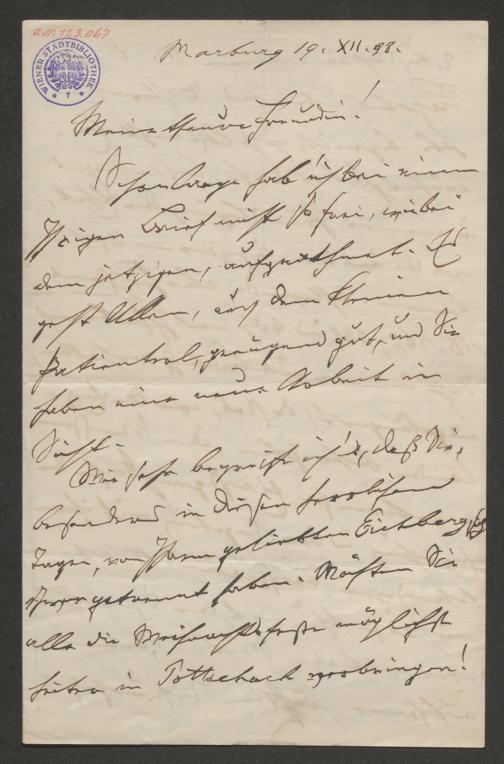 J.N. 123.067
WIENER STADTBIBLIOTHEK
* 7 *
Marburg 19. XII. 98.
Meine theure Freundin!
Schon lange hab' ich bei einem
Ihrigen Brief nicht so frei, wie bei
dem jetzigen, aufgeathmet. Es
geht Allen, auch dem kleinen
genügend gut, und Sie
haben eine neue Arbeit in
Sicht.
Wie sehr begreife ich's, daß Sie,
besonders in diesen herrlichen
Tagen, vom Ihrem geliebten Eichberg sich
schwer getrennt haben. Möchten Sie
alle die Weihnachtsfeste möglichst
heiter in Pottschach verbringen!